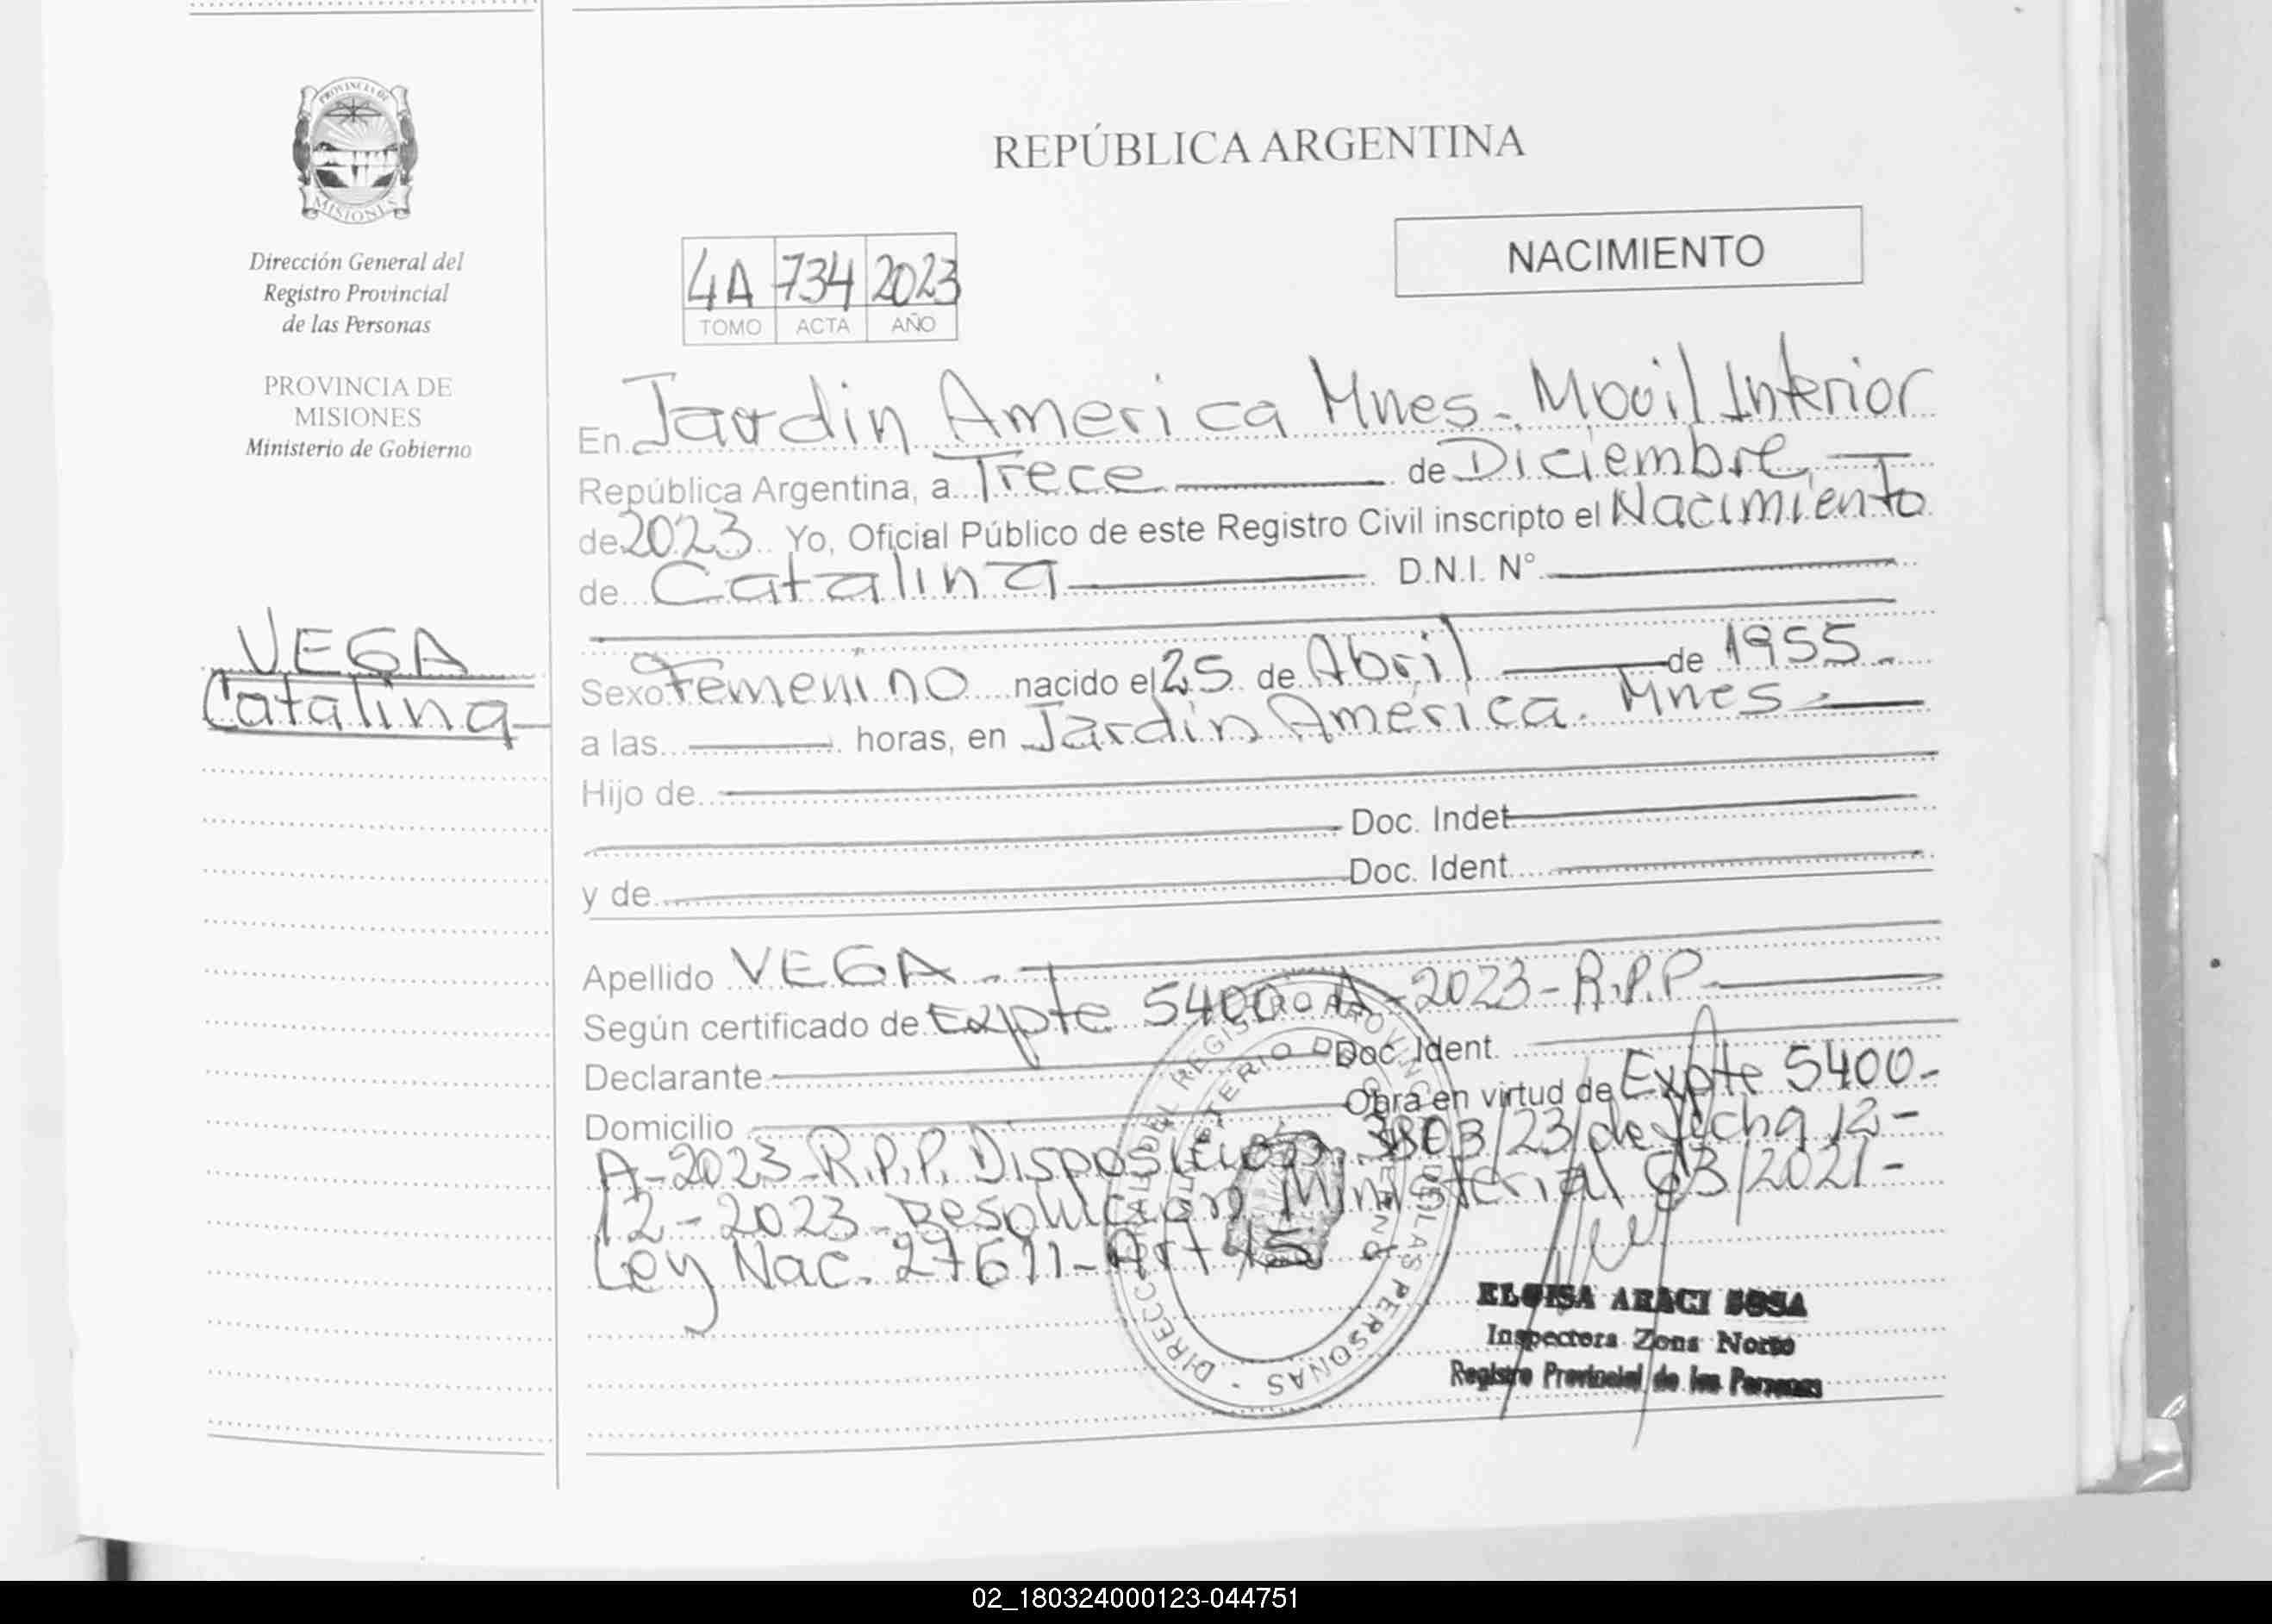 PROVINCIA DE
MISIONES
Dirección General del
Registro Provincial
de las Personas
PROVINCIA DE
MISIONES
Ministerio de Gobierno
VEGA
Catalina
REPÚBLICA ARGENTINA
NACIMIENTO
4A 734 2023
TOMO ACTA AÑO
En Jardin America Mnes. Movil Interior
República Argentina, a Trece de Diciembre
de 2023 Yo, Oficial Público de este Registro Civil inscripto el Nacimiento
de Catalina D.N.I. N°
Sexo Femenino nacido el 25 de Abril de 1955.
a las horas, en Jardin América. Mnes
Hijo de
Doc. Indet
y de Doc. Ident.
Apellido VEGA
Según certificado de Expte 5400 A-2023-R.P.P
Declarante Doc. Ident.
Domicilio Obra en virtud de Expte 5400-
A-2023-R.P.P. Disposición 3803/23/de fecha 12-
12-2023-Resolución Ministerial /2021-
Ley Nac. 27611-Art
DIRECC DEL REGISTRO PROVINC DE LAS PERSONAS
ELOISA ARACI SOSA
Inspectora Zona Norte
Registro Provincial de las Personas
02_180324000123-044751